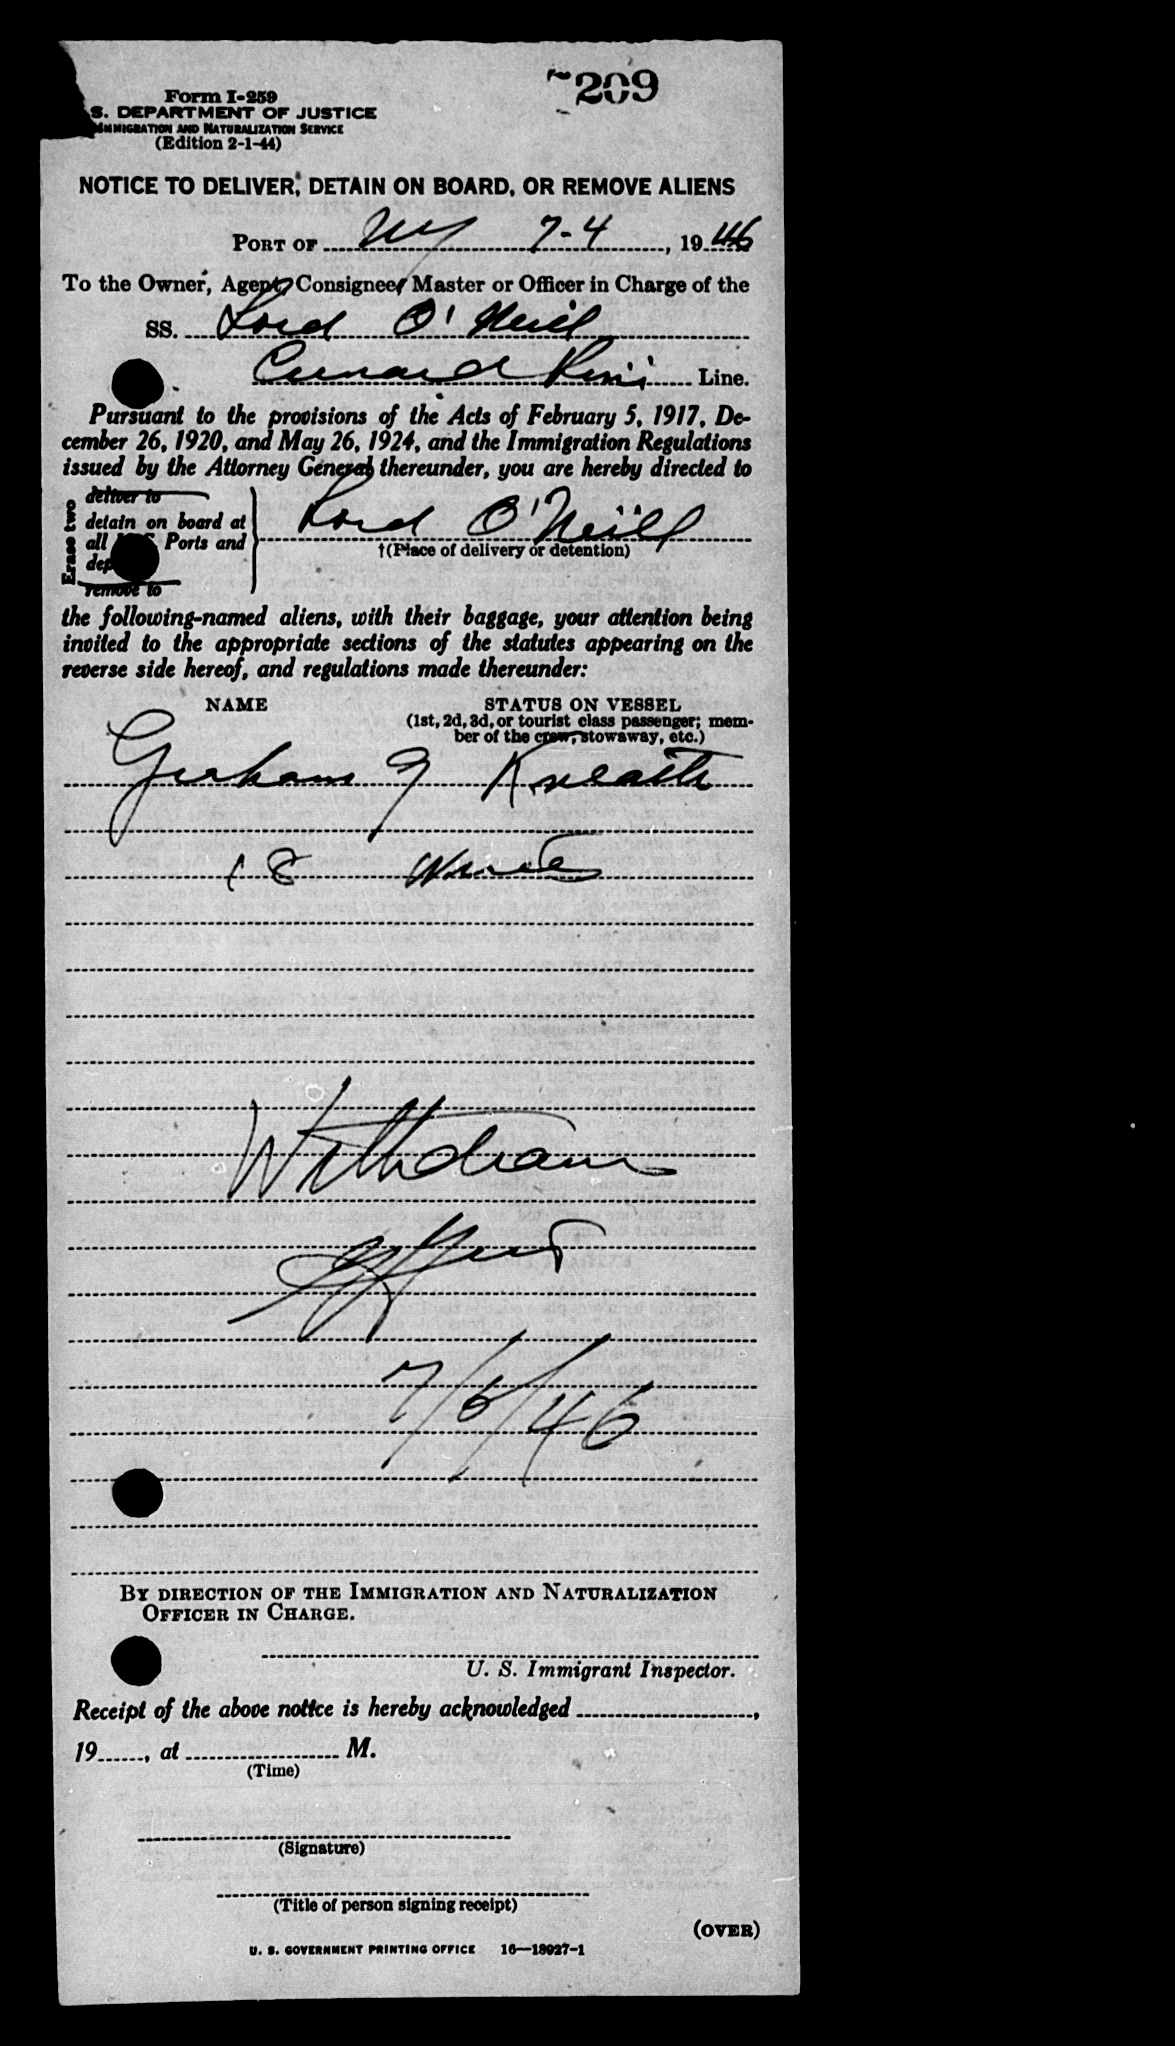 209
Form I-259
S. DEPARTMENT OF JUSTICE
IMMIGRATION AND NATURALIZATION SERVICE
(Edition 2-1-44)
NOTICE TO DELIVER, DETAIN ON BOARD, OR REMOVE ALIENS
PORT OF NY 7-4, 1946
To the Owner, Agent, Consignee, Master or Officer in Charge of the
SS. Lord O'Neill
Cunard Line.
Pursuant to the provisions of the Acts of February 5, 1917, De-
cember 26, 1920, and May 26, 1924, and the Immigration Regulations
issued by the Attorney General thereunder, you are hereby directed to
Erase two
deliver to
detain on board at
all Ports and
remove to
Lord O'Neill
†(Place of delivery or detention)
the following-named aliens, with their baggage, your attention being
invited to the appropriate sections of the statutes appearing on the
reverse side hereof, and regulations made thereunder:
NAME STATUS ON VESSEL
(1st, 2d, 3d, or tourist class passenger; mem-
ber of the crew, stowaway, etc.)
Graham J Kneath
18
Withdrawn
7/6/46
BY DIRECTION OF THE IMMIGRATION AND NATURALIZATION
OFFICER IN CHARGE.
U. S. Immigrant Inspector.
Receipt of the above notice is hereby acknowledged ,
19 , at M.
(Time)
(Signature)
(Title of person signing receipt)
(OVER)
U. S. GOVERNMENT PRINTING OFFICE 16—18027-1